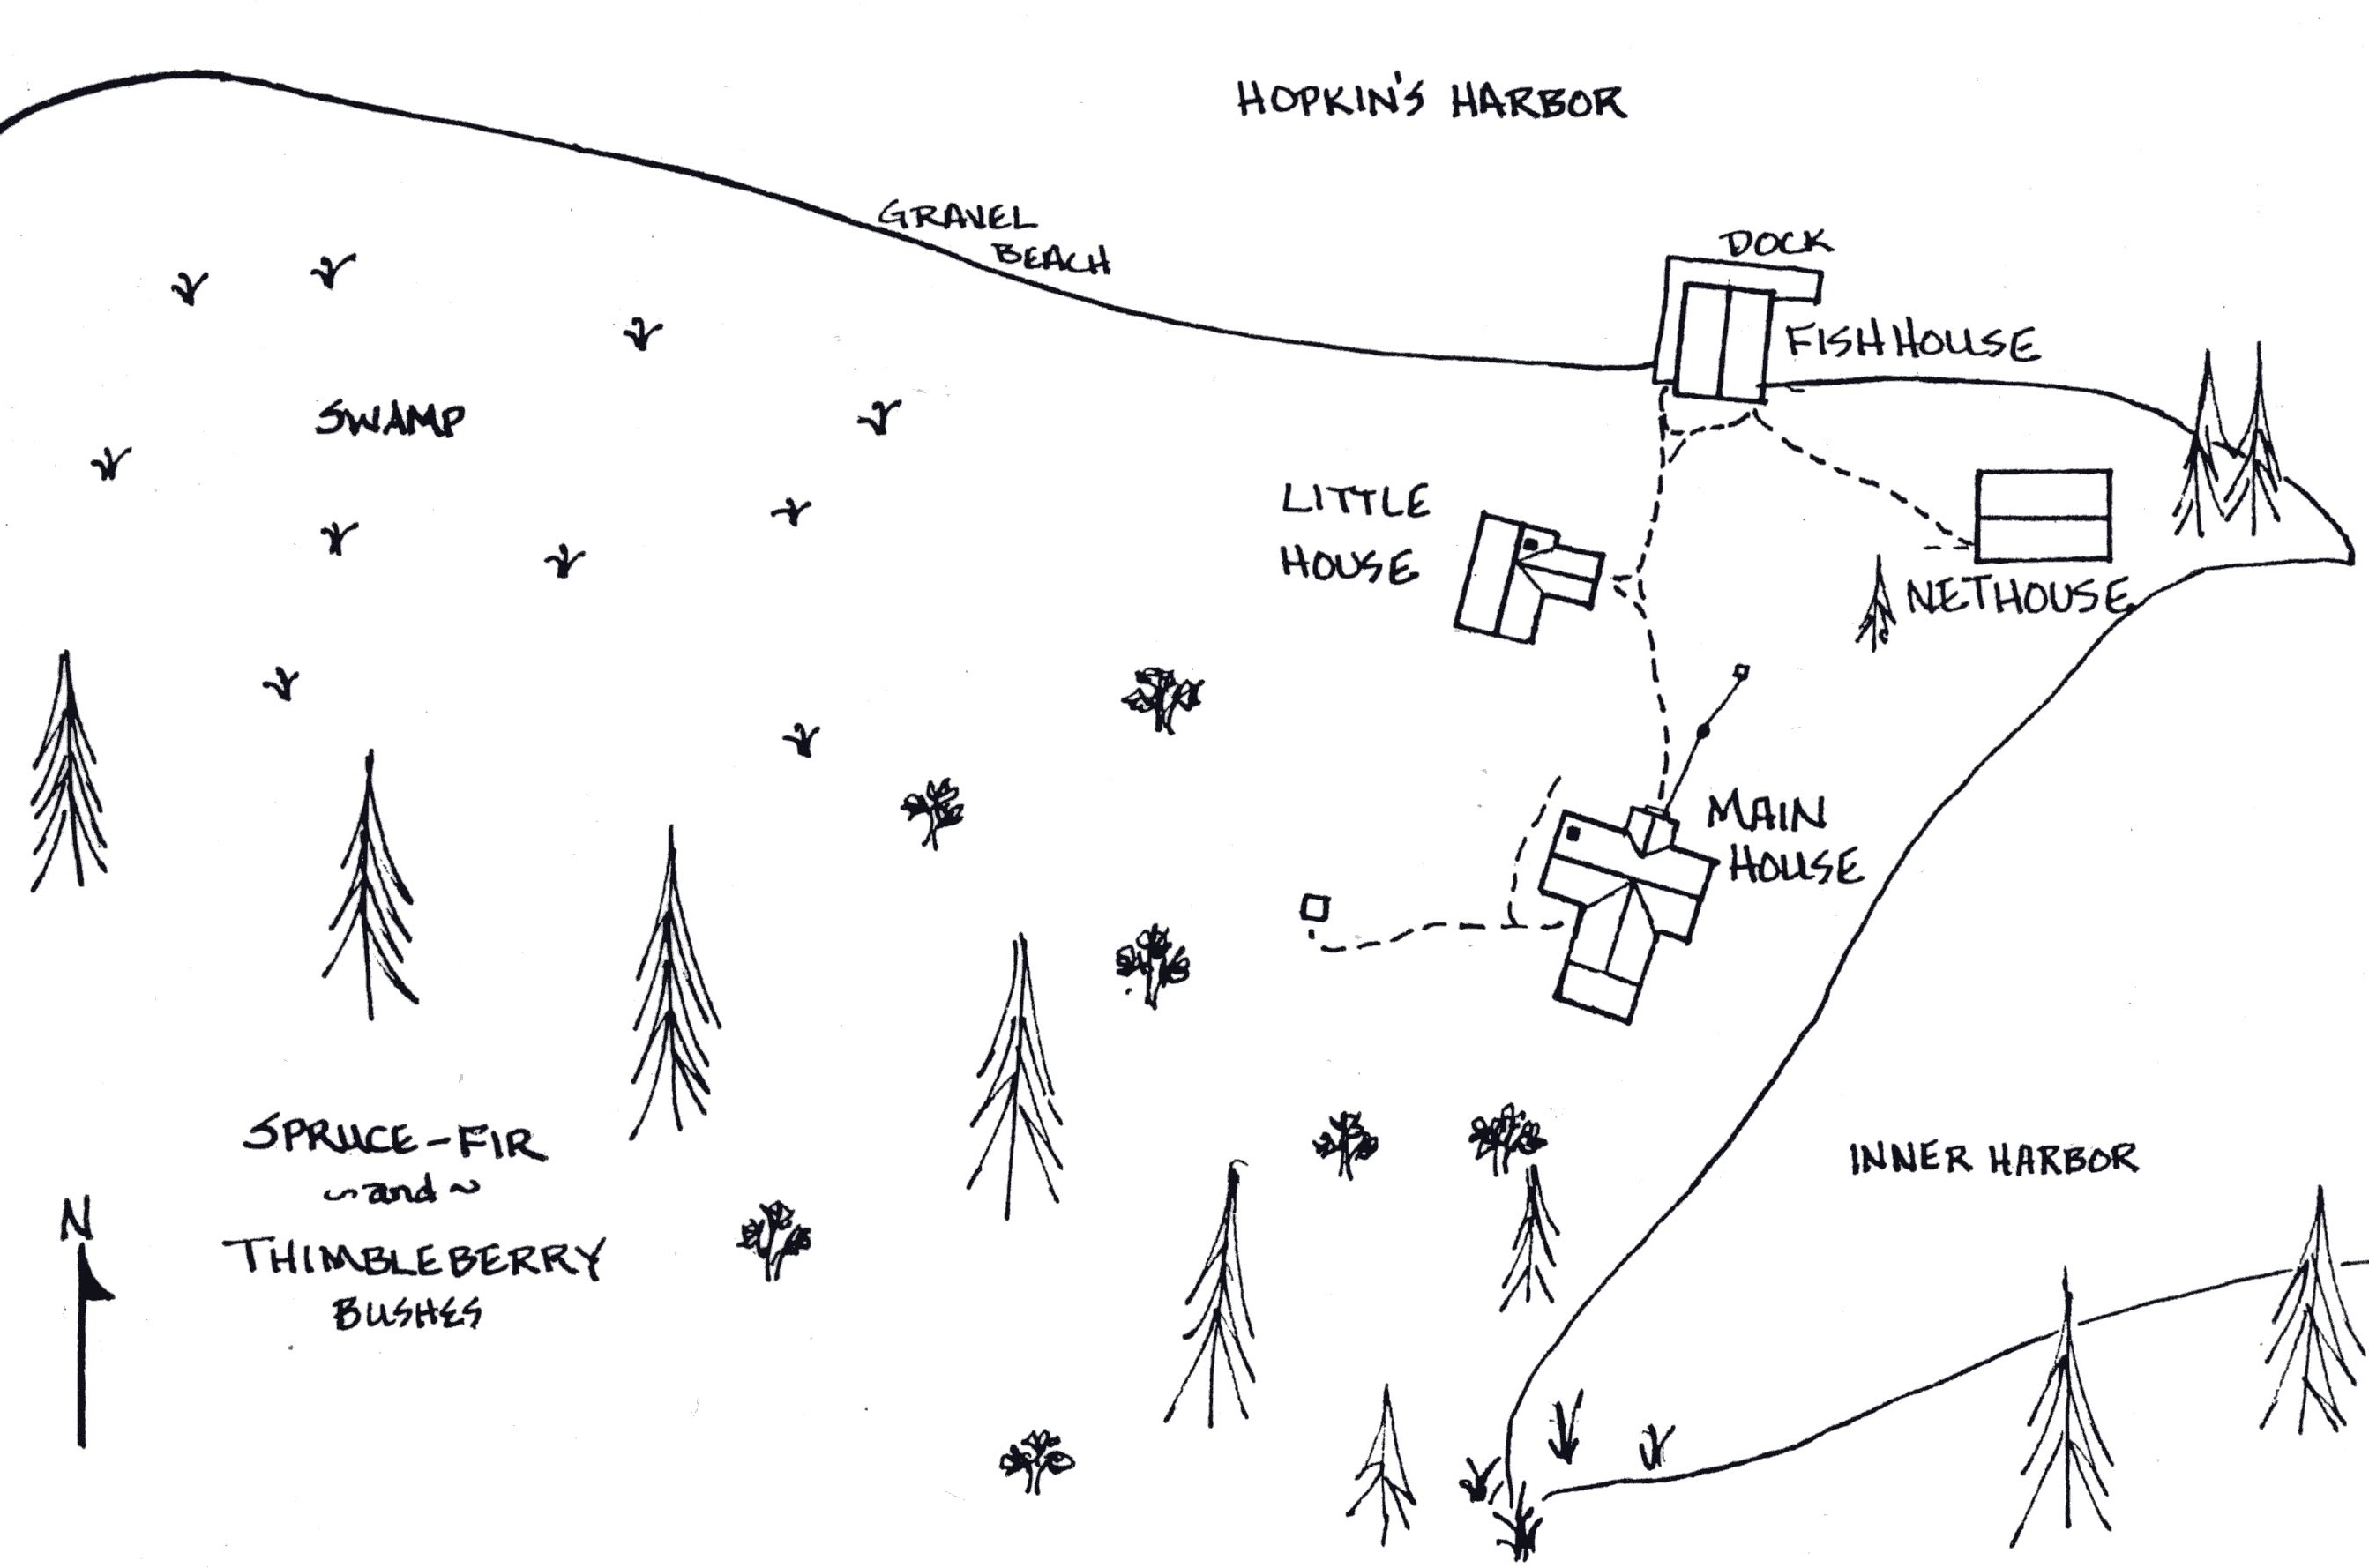 HOPKIN'S HARBOR
GRAVEL
BEACH
DOCK
FISHHOUSE
SWAMP
LITTLE
HOUSE
NETHOUSE
MAIN
HOUSE
SPRUCE-FIR
~and~
THIMBLEBERRY
BUSHES
N
INNER HARBOR